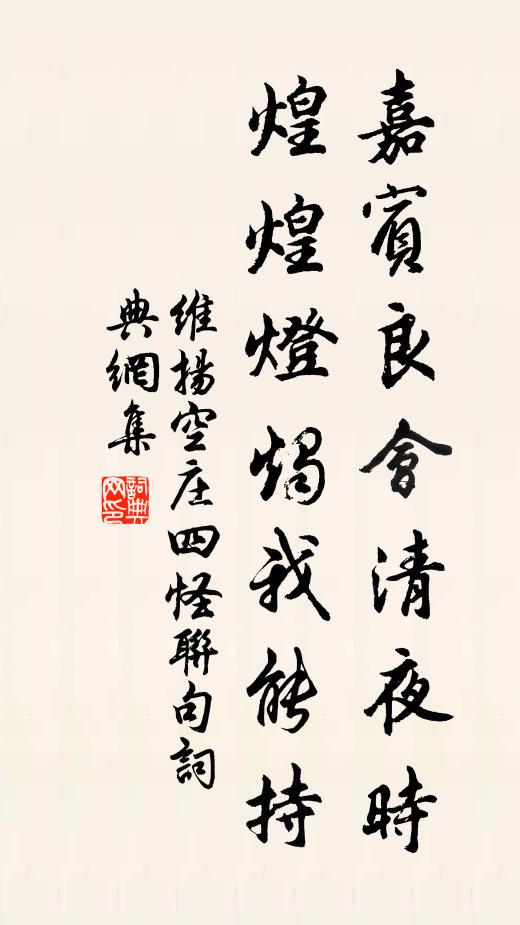 嘉賓良會清夜時
煌煌燈燭我能持
維揚空庄四怪聯句詞
典網集
詞典網印